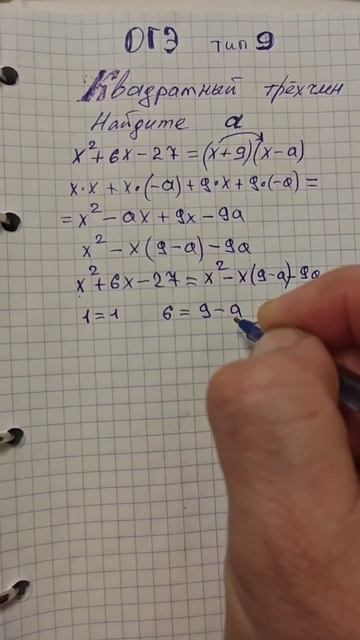 ОГЭ тип 9
Квадратный трёхчлен
Найдите a
x²+6x-27=(x+9)(x-a)
x·x+x·(-a)+9·x+9·(-a)=
=x²-ax+9x-9a
x²-x(9-a)-9a
x²+6x-27=x²-x(9-a)-9a
1=1 6=9-a